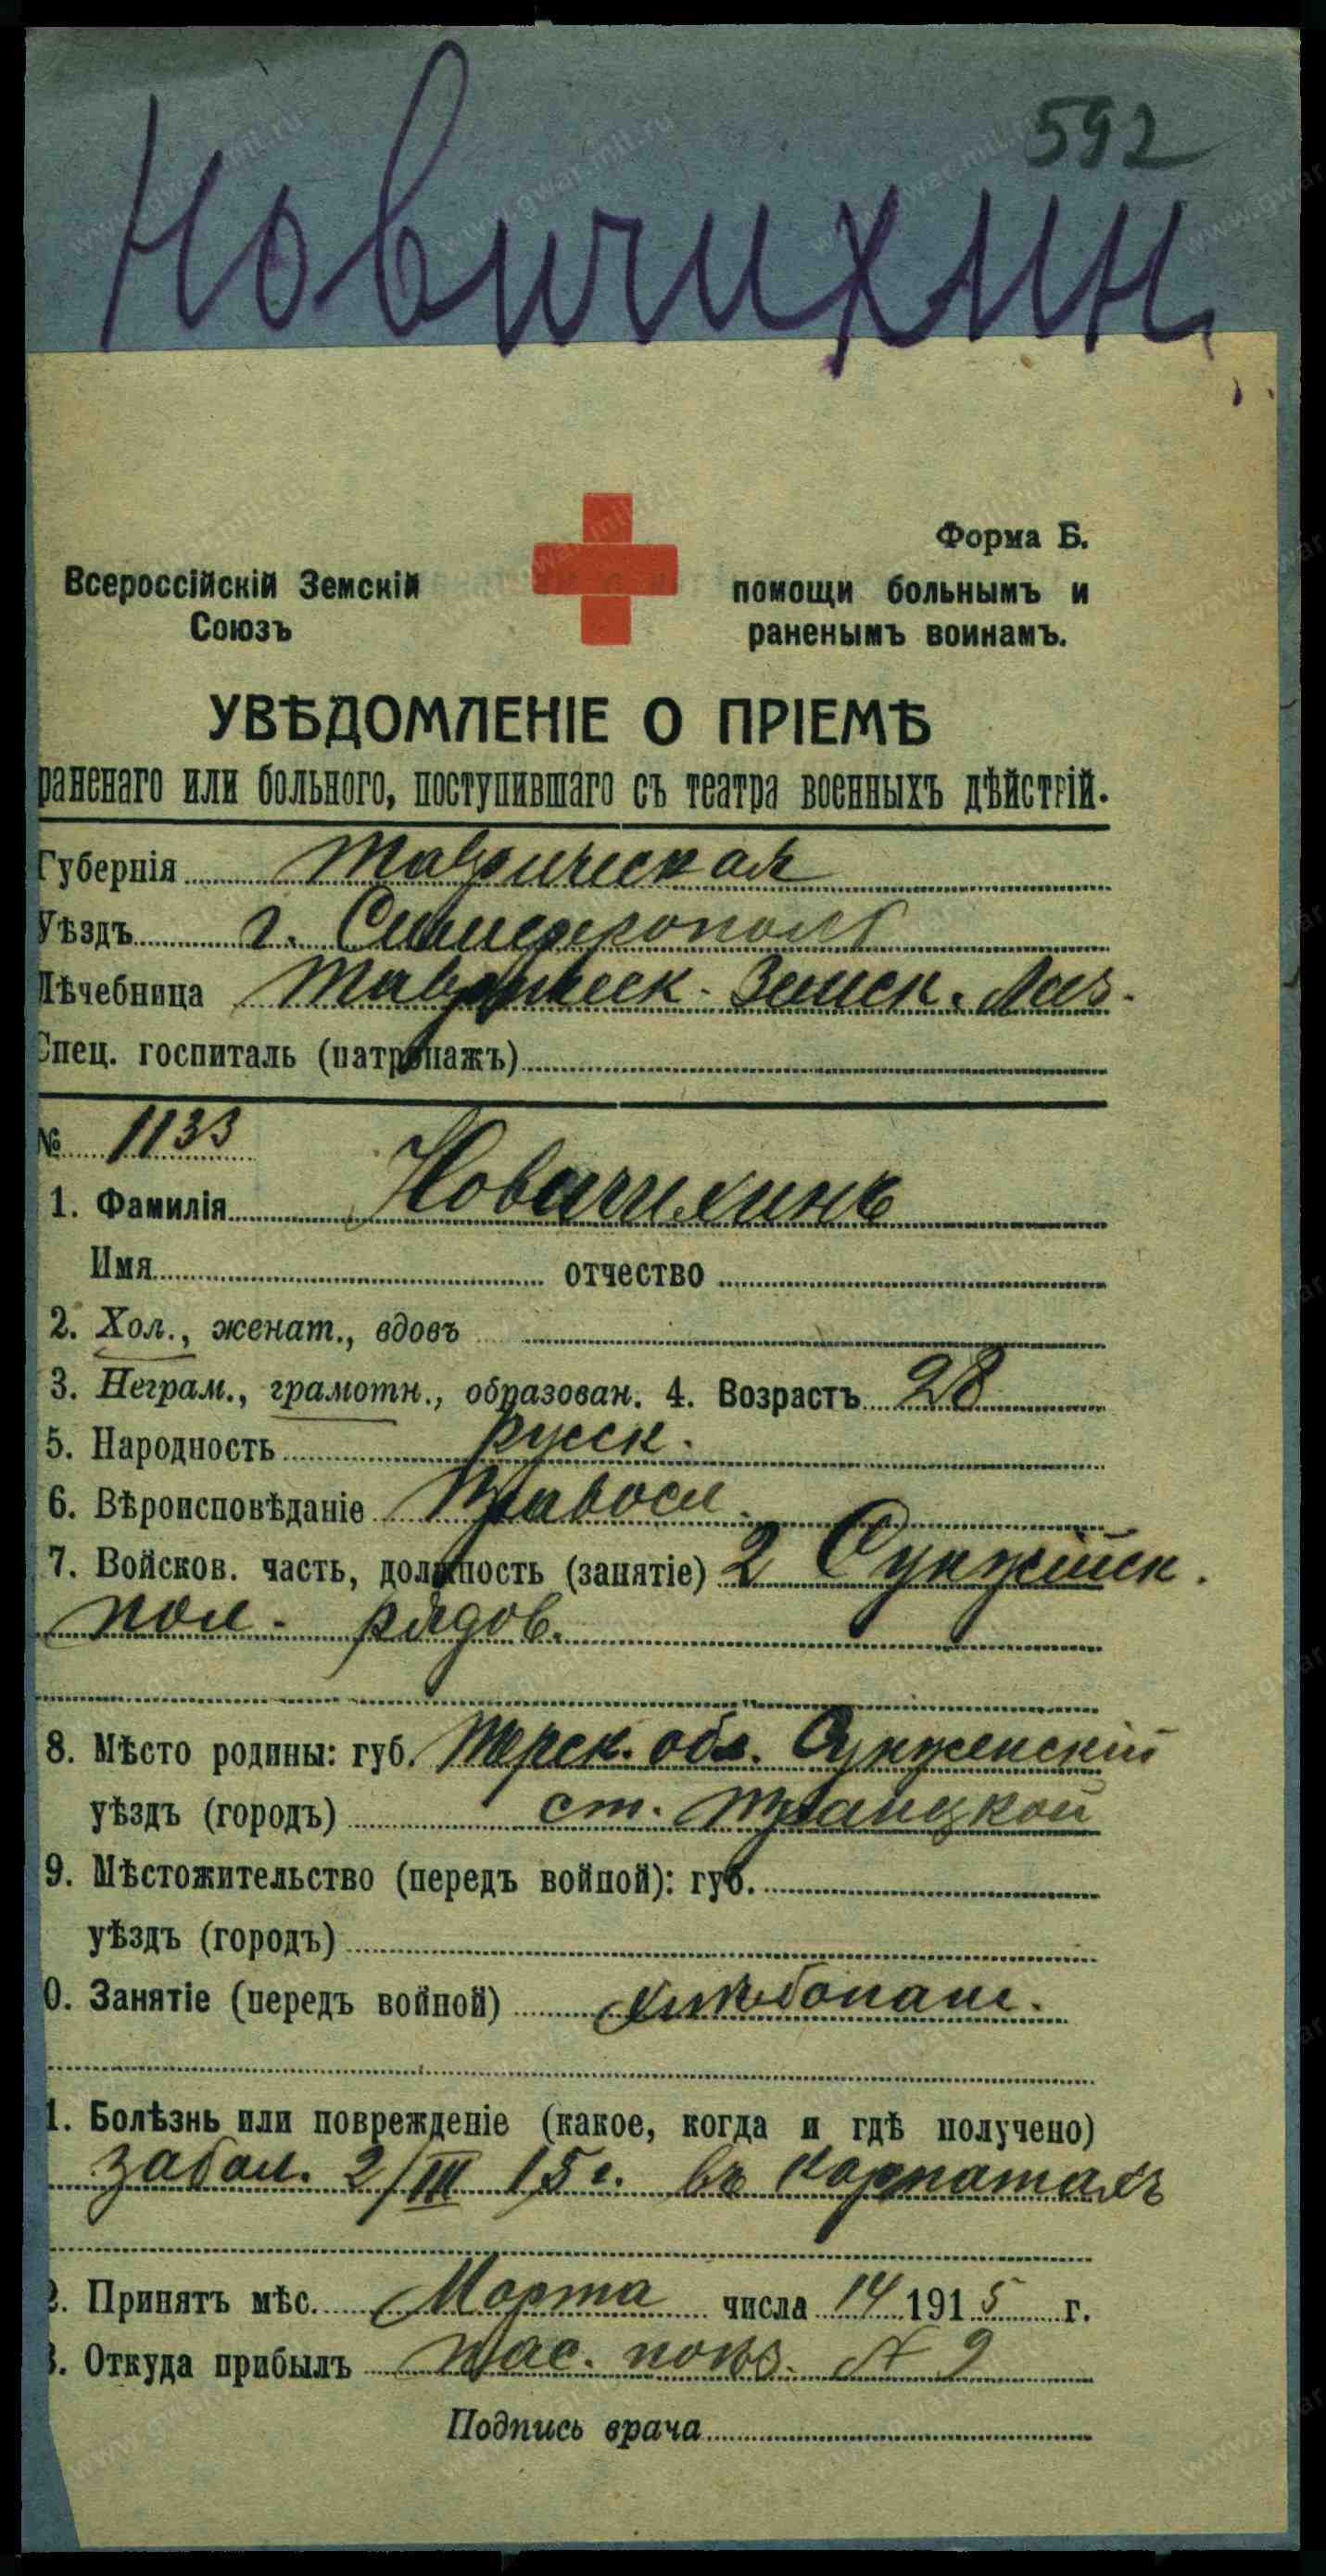 592
Новичихин
Форма Б.
Всероссійскій Земскій
Союзъ
помощи больнымъ и
раненымъ воинамъ.
УВѢДОМЛЕНІЕ О ПРІЕМѢ
раненаго или больного, поступившаго съ театра военныхъ дѣйствій.
Губернія Таврическая
Уѣздъ г. Симферополь
Лѣчебница Таврическ. Земск. Лаз.
Спец. госпиталь (патронажъ)
№ 1133
1. Фамилія Новичихинъ
Имя отчество
2. Хол., женат., вдовъ
3. Неграм., грамотн., образован. 4. Возрастъ 28
5. Народность русск.
6. Вѣроисповѣданіе Правосл.
7. Войсков. часть, должность (занятіе) 2 Сунжинск.
пол. рядов.
8. Мѣсто родины: губ. Терск. обл. Сунженскій
уѣздъ (городъ) ст. Троицкой
9. Мѣстожительство (передъ войной): губ.
уѣздъ (городъ)
0. Занятіе (передъ войной) хлѣбопаш.
1. Болѣзнь или поврежденіе (какое, когда и гдѣ получено)
забол. 2/III 15 г. въ Карпатахъ
2. Принятъ мѣс. Марта числа 14 1915 г.
3. Откуда прибылъ пас. поѣз. № 9
Подпись врача